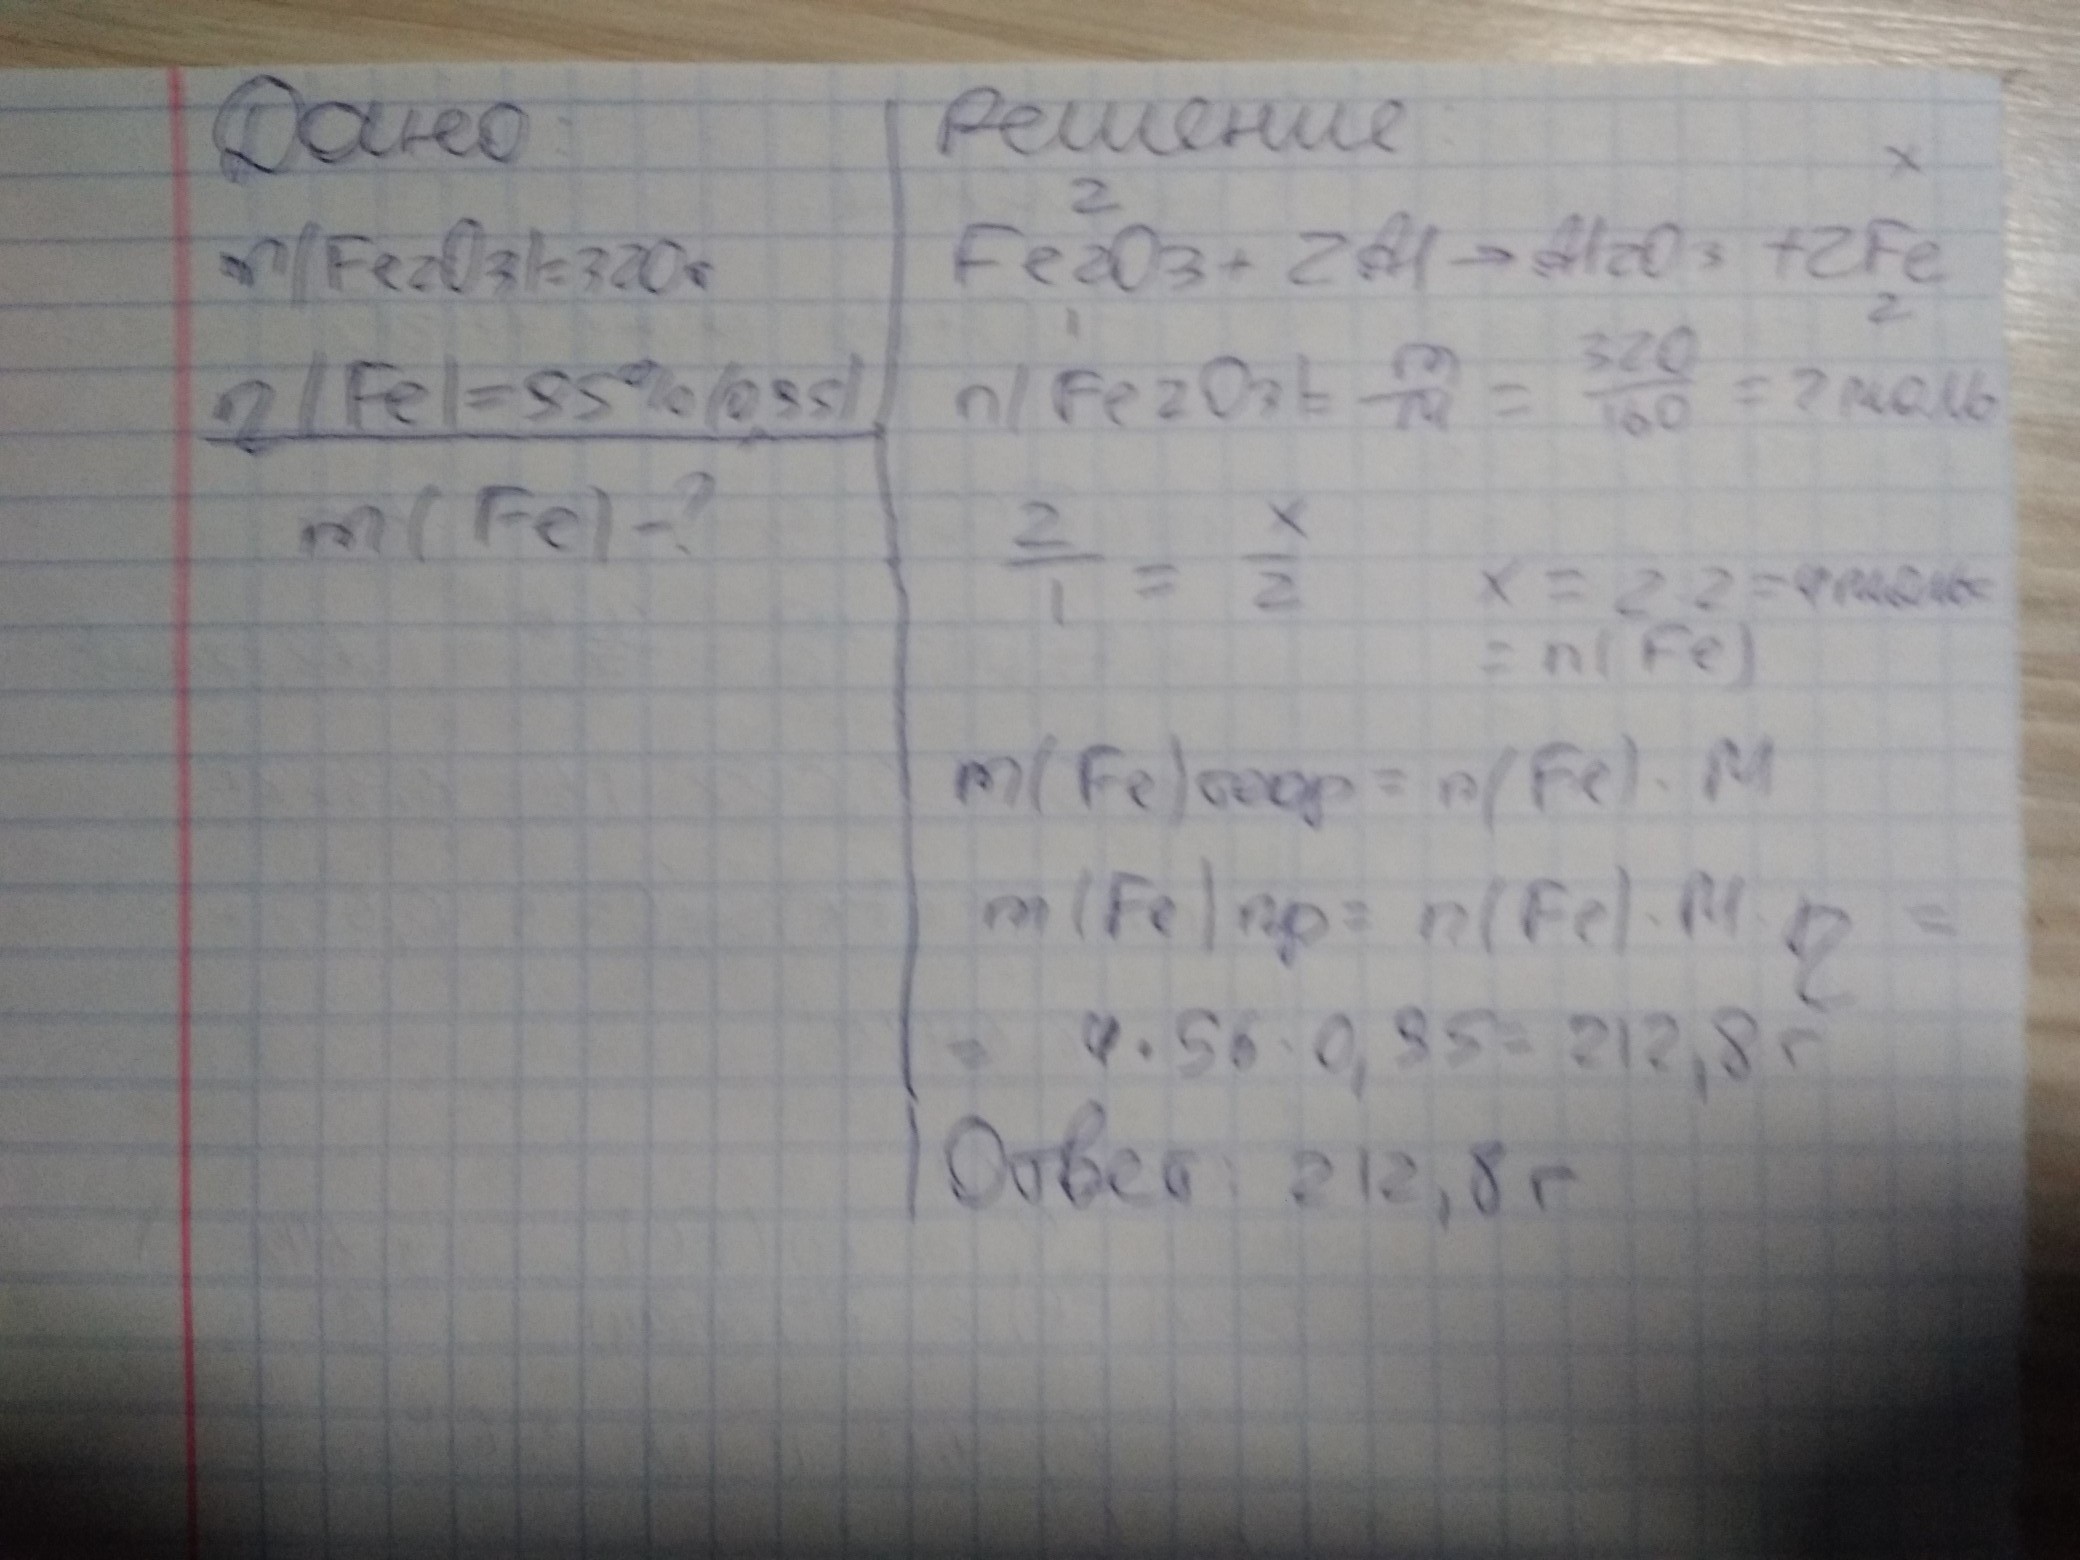 Дано:
m(Fe2O3)=320г
η(Fe)=95%(0,95)
m(Fe)-?
Решение:
2 x
Fe2O3 + 2Al → Al2O3 + 2Fe
1 2
n(Fe2O3)= m/M = 320/160 = 2 моль
2/1 = x/2 x = 2·2 = 4 моль
= n(Fe)
m(Fe)теор = n(Fe)·M
m(Fe)пр = n(Fe)·M·η =
= 4·56·0,95 = 212,8 г
Ответ: 212,8 г